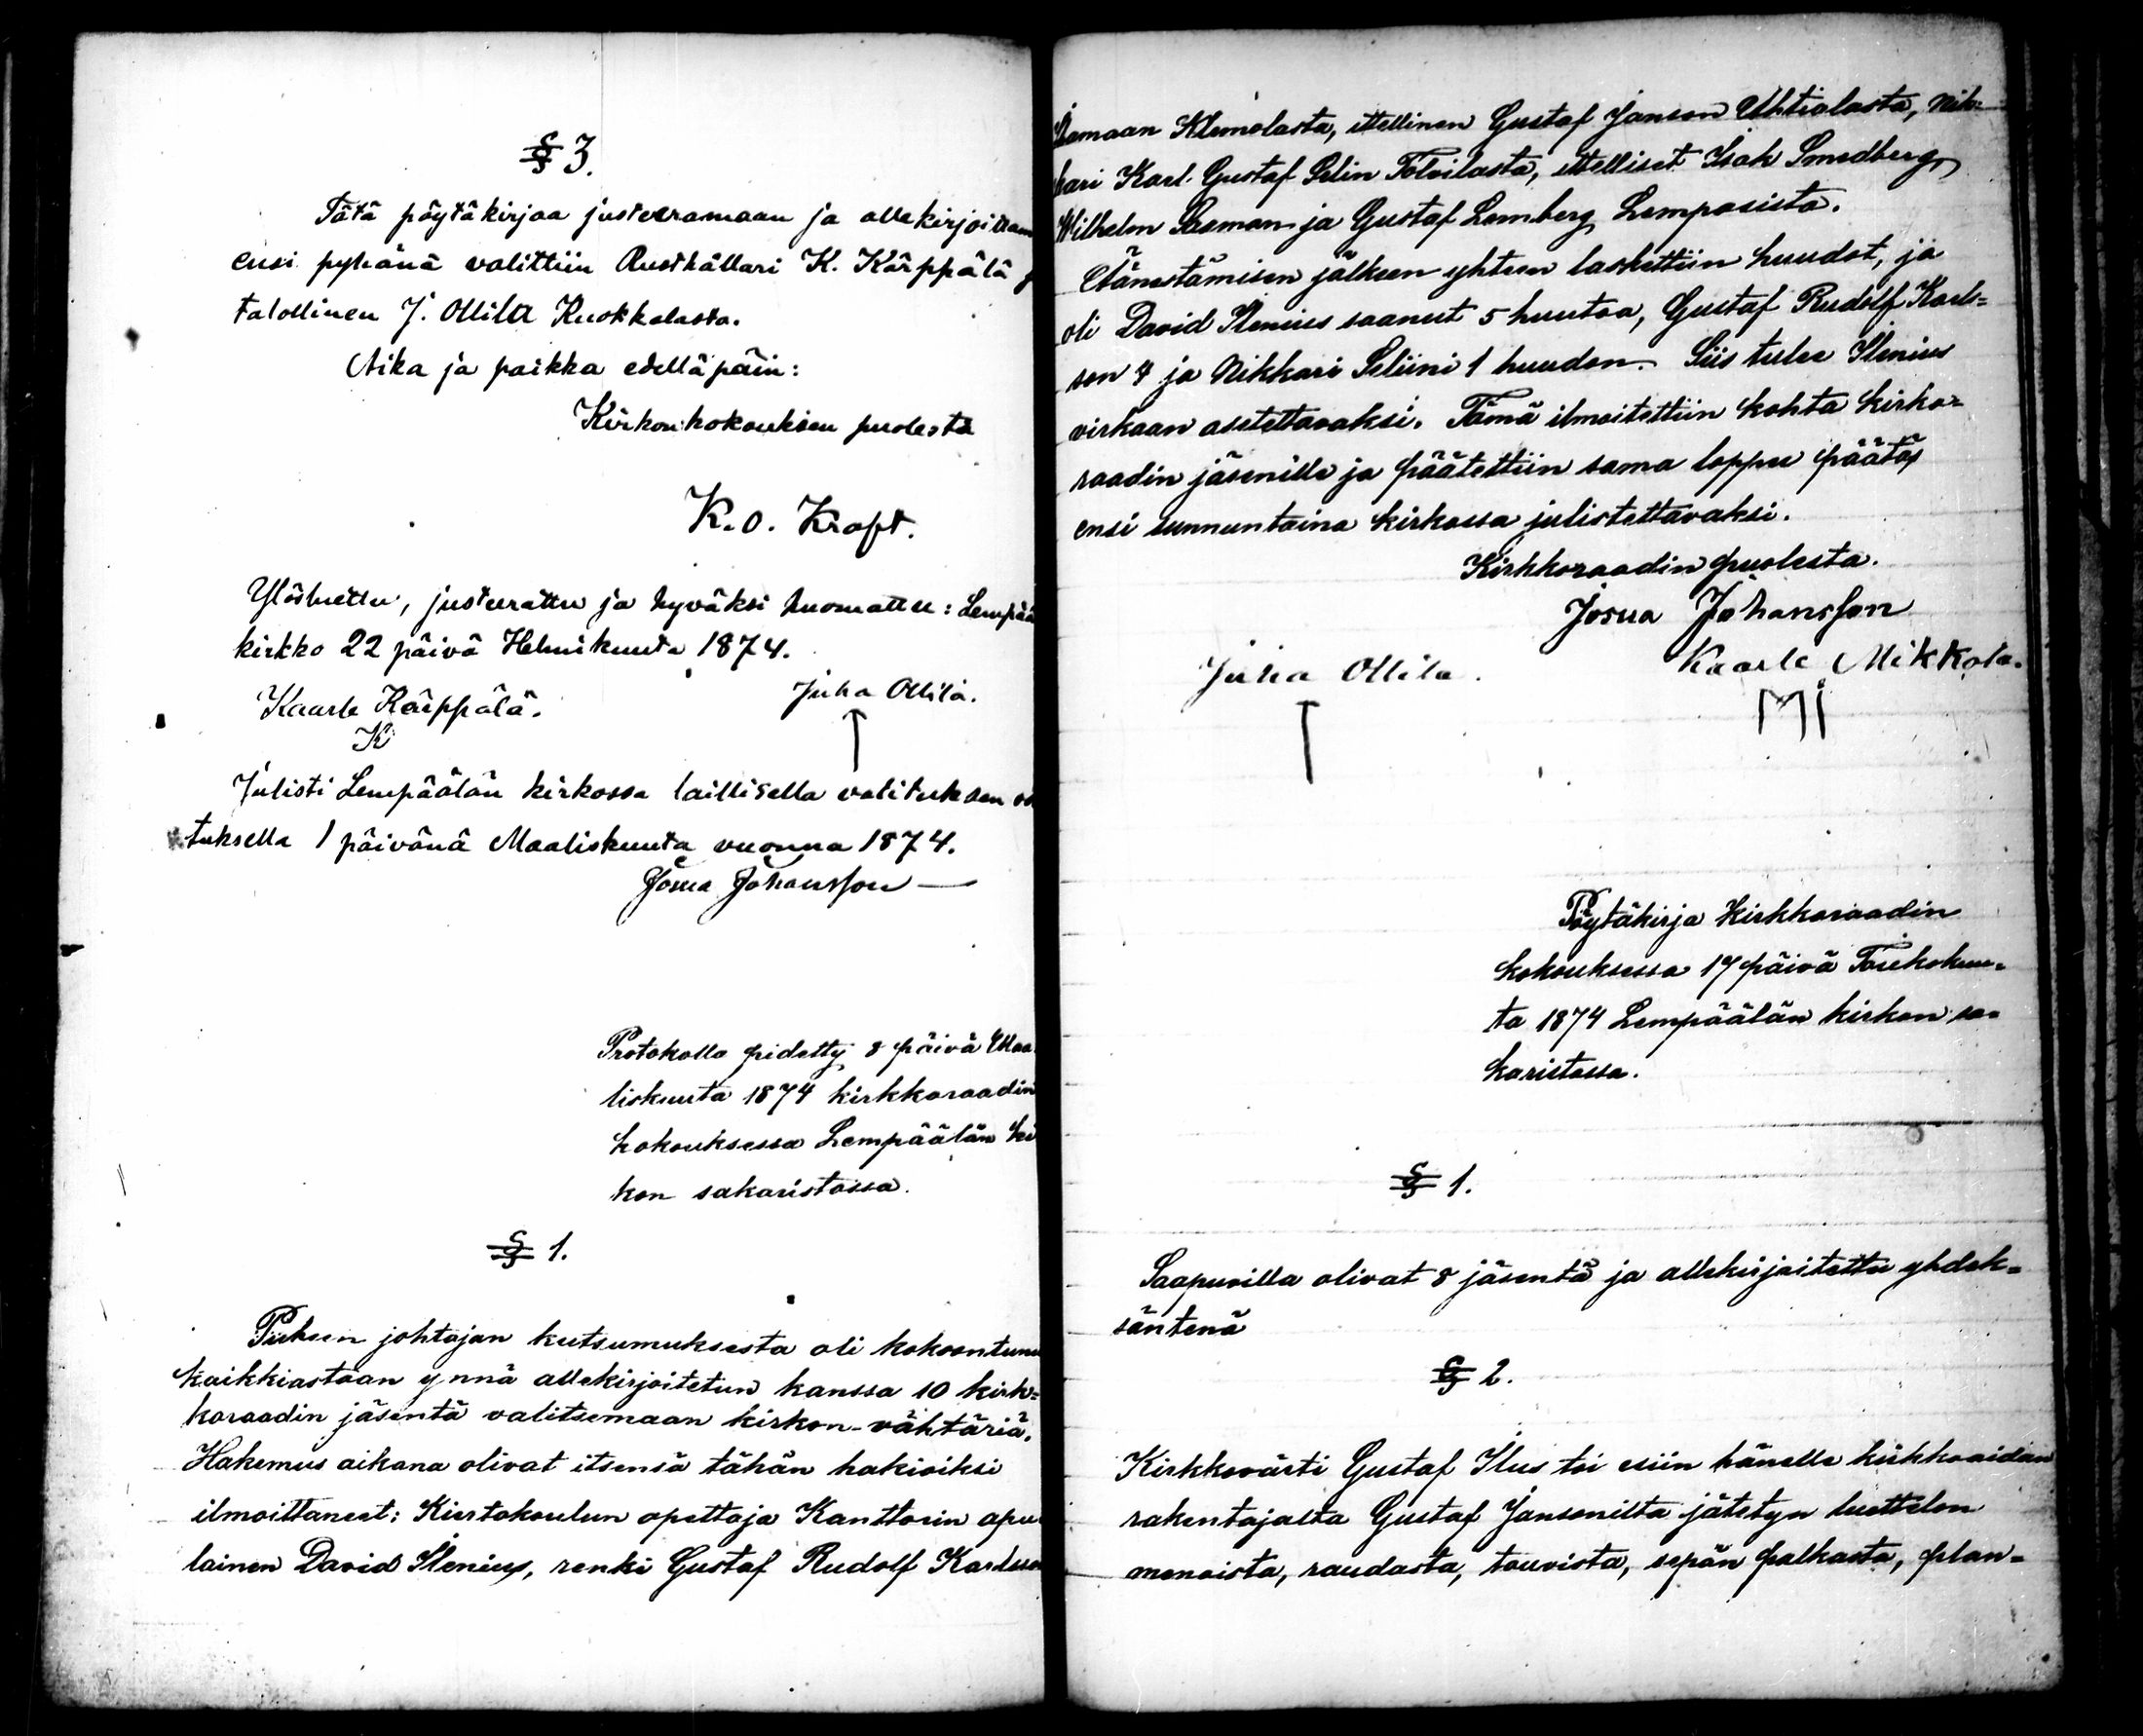 § 3.
Tätä pöytäkirjaa justeeramaan ja allekirjoittam
ensi pyhänä valittiin Rusthållari K. Kärppälä
talollinen J. Ollila Kuokkalasta.
Aika ja paikka edelläpäin:
Kirkonkokouksen puolesta
K. O. Kraft.
Ylösluettu, justeerattu ja hyväksi huomattu: Lempää
kirkko 22 päivä Helmikuuta 1874.
Kaarle Kärppälä. Juha Ollila.
K
Julisti Lempäälän kirkossa laillisella valituksen
tuksella 1 päivänä Maaliskuuta vuonna 1874.
Josua Johansson
Protokolla pidetty 8 päivä Maa
liskuuta 1874 kirkkoraadin
kokouksessa Lempäälän ki
kon sakaristossa.
§ 1.
Puheen johtajan kutsumuksesta oli kokoontunu
kaikkiastaan ynnä allekirjoitetun kanssa 10 kirk=
koraadin jäsentä valitsemaan kirkon-vähtäriä.
Hakemus aikana olivat itsensä tähän hakioiksi
ilmoittaneet: Kiertokoulun opettaja Kanttorin apu
lainen David Stenius, renki Gustaf Rudolf Karlsson
Klemolasta, ittellinen Gustaf Janson Uhtialasta, Nik=
kari Karl Gustaf Selin Tolvilasta, ittelliset Isak Smedberg
Wilhelm Saxman ja Gustaf Lemberg Lempoisista.
Äänestämisen jälkeen yhteen laskettiin huudot, ja
oli David Stenius saanut 5 huutoa, Gustaf Rudolf Karls=
son 4 ja Nikkari Seliini 1 huudon. Siis tulee Stenius
virkaan asetettavaksi. Tämä ilmoitettiin kohta kirko=
raadin jäsenille ja päätettiin sama loppu päätös
ensi sunnuntaina kirkossa julistettavaksi.
Kirkkoraadin puolesta.
Josua Johansson
Juha Ollila. Kaarle Mikkola.
Pöytäkirja Kirkkoraadin
kokouksessa 17 päivä Toukokuu=
ta 1874 Lempäälän kirkon sa=
karistossa.
§ 1.
Saapuvilla olivat 8 jäsentä ja allekirjoitettu yhdek=
säntenä
§ 2.
Kirkkovärti Gustaf Ilus toi esiin hänelle kirkkoaidan
rakentajasta Gustaf Jansonilta jätetyn luettelon
menoista, raudasta, touvista, sepän palkasta, plan=